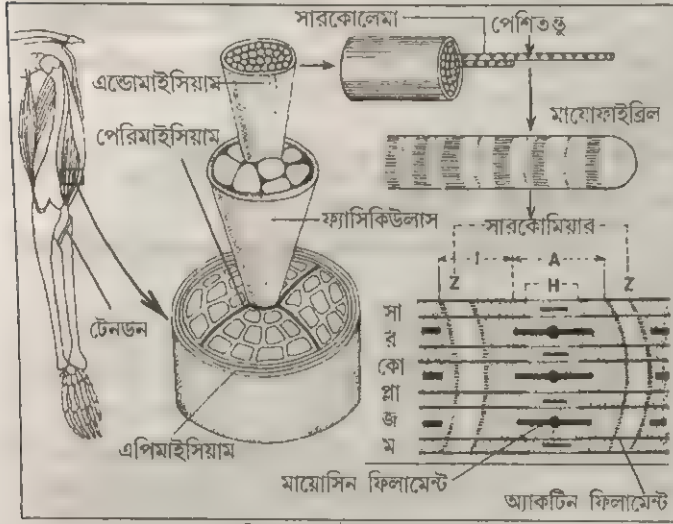 সারকোলেমা
পেশিতন্তু
এন্ডোমাইসিয়াম
পেরিমাইসিয়াম
মায়োফাইব্রিল
ফ্যাসিকিউলাস
সারকোমিয়ার
I A
Z H Z
টেনডন
সারকোপ্লাজম
এপিমাইসিয়াম
মায়োসিন ফিলামেন্ট
অ্যাকটিন ফিলামেন্ট